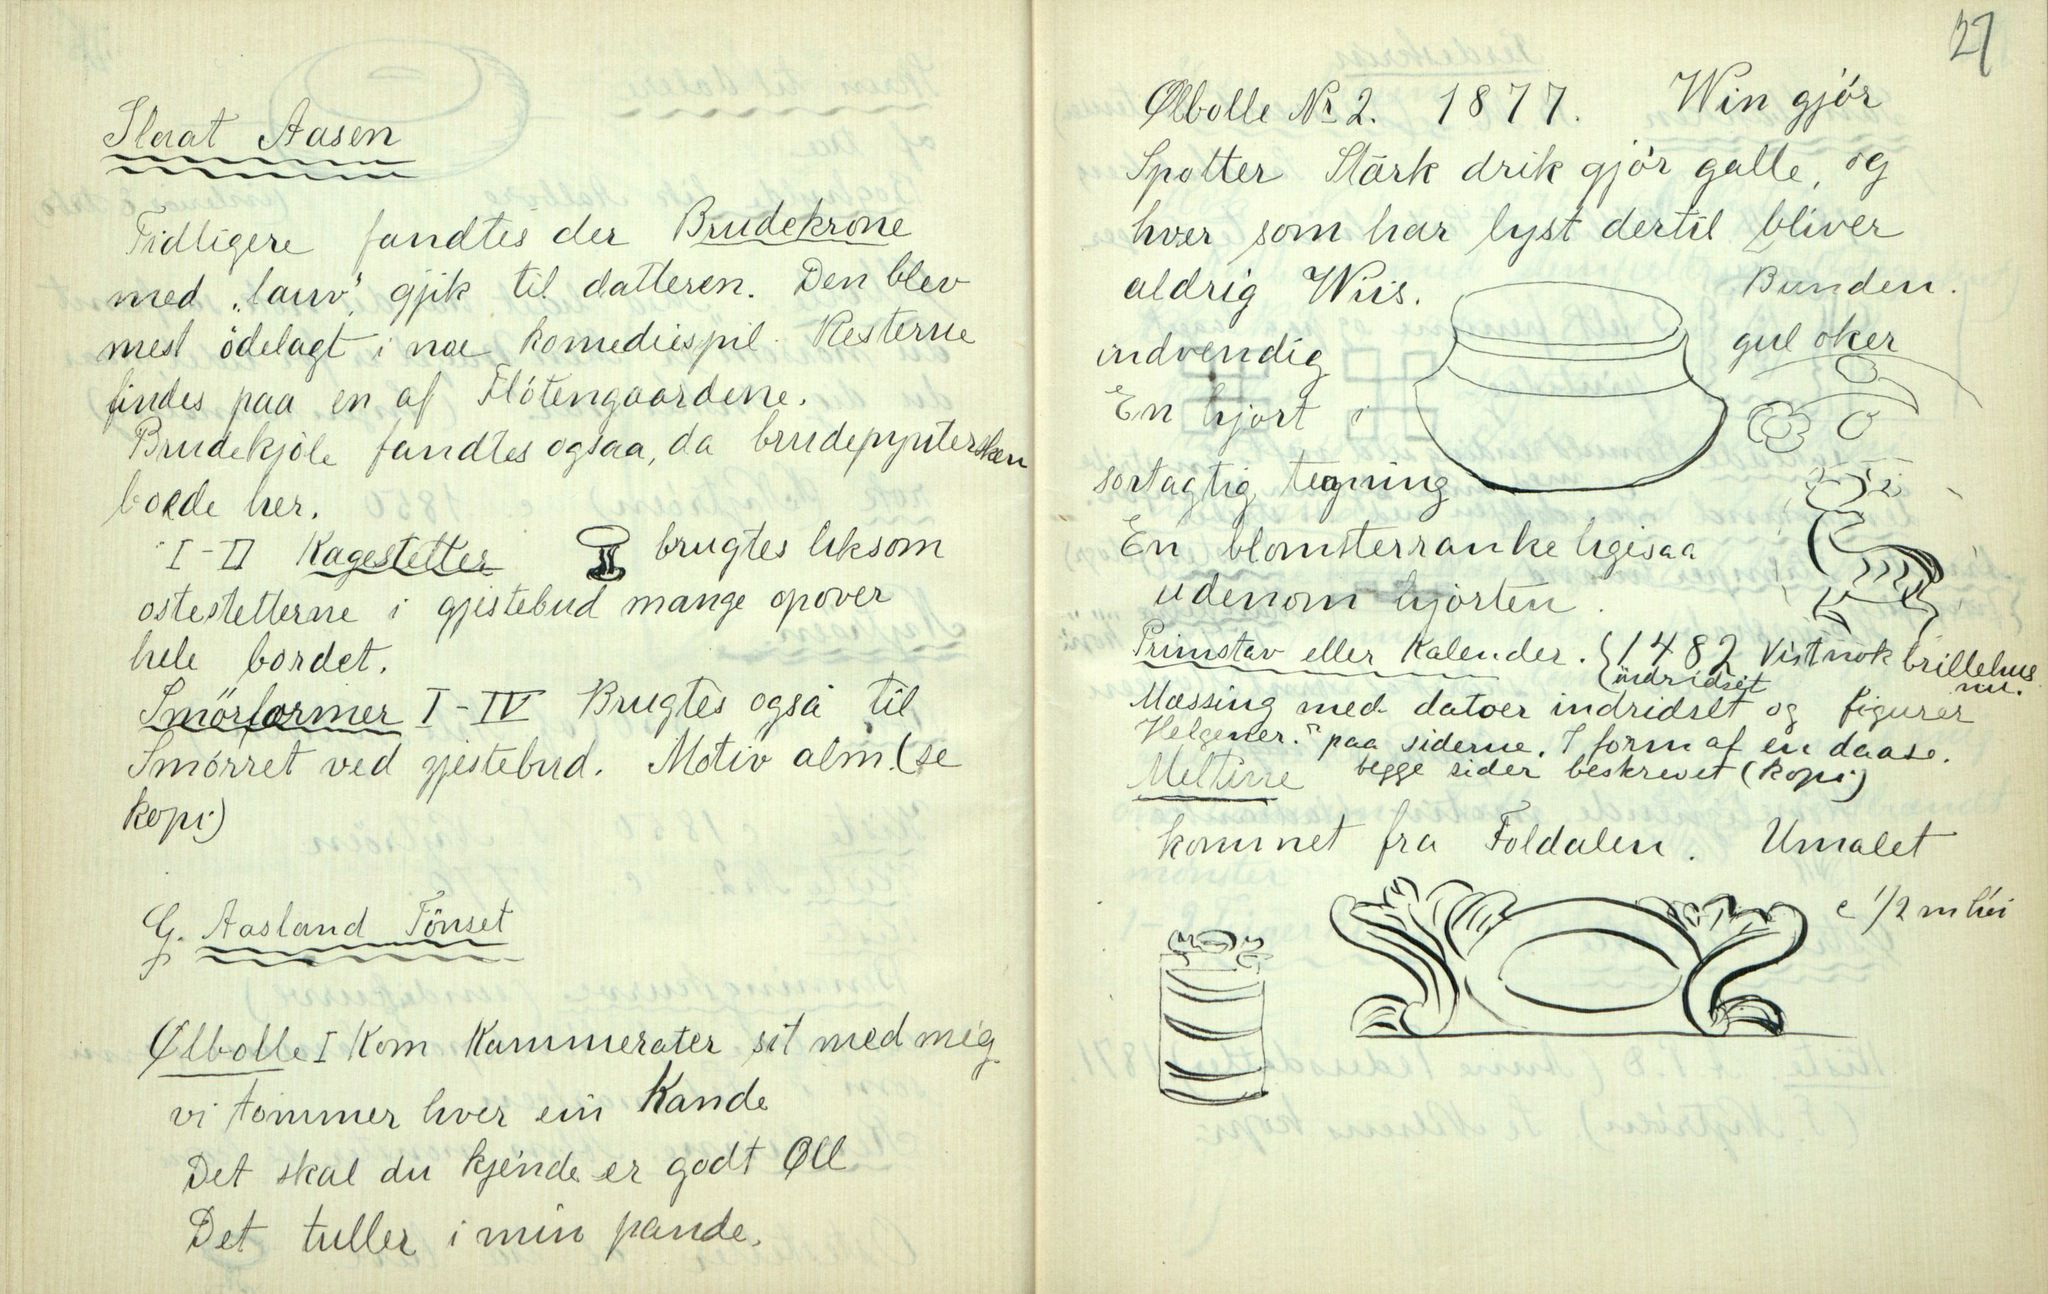 Slaat Aasen
Tidligere fandtes der Brudekrone
med „lauv", gjik til datteren. Den blev
mest ödelagt i noe komediespil. Resterne
findes paa en af Flötengaardene.
Brudekjole fandtes ogsaa, da brudepyntersken
boede her.
I-II Kagestetter brugtes liksom
ostestetterne i gjestebud mange opover
hele bordet.
Smörformer I-IV Brugtes også til
Smörret ved gjestebud. Motiv alm. (se
kopi)
G. Aasland Tönset
Ølbolle I Kom Kammerater sit med mig
vi tömmer hver ein Kande
Det skal du kjende er godt Øll
Det tuller i min pande.
27
Ølbolle No 2. 1877. Win gjör
Spotter Stärk drik gjör galle, og
hver som har lyst dertil bliver
aldrig Wiis. Bunden.
indvendig gul oker
En hjort i
sortagtig tegning
En blomsterranke ligesaa
udenom hjorten.
Primstav eller Kalender. {1482 Vistnok brillehus
indridset nu.
Messing med datoer indridset og figurer
Helgener." paa siderne. I form af en daase.
Meltine begge sider beskrevet (kopi)
kommet fra Foldalen. Umalet
c 1/2 m höi